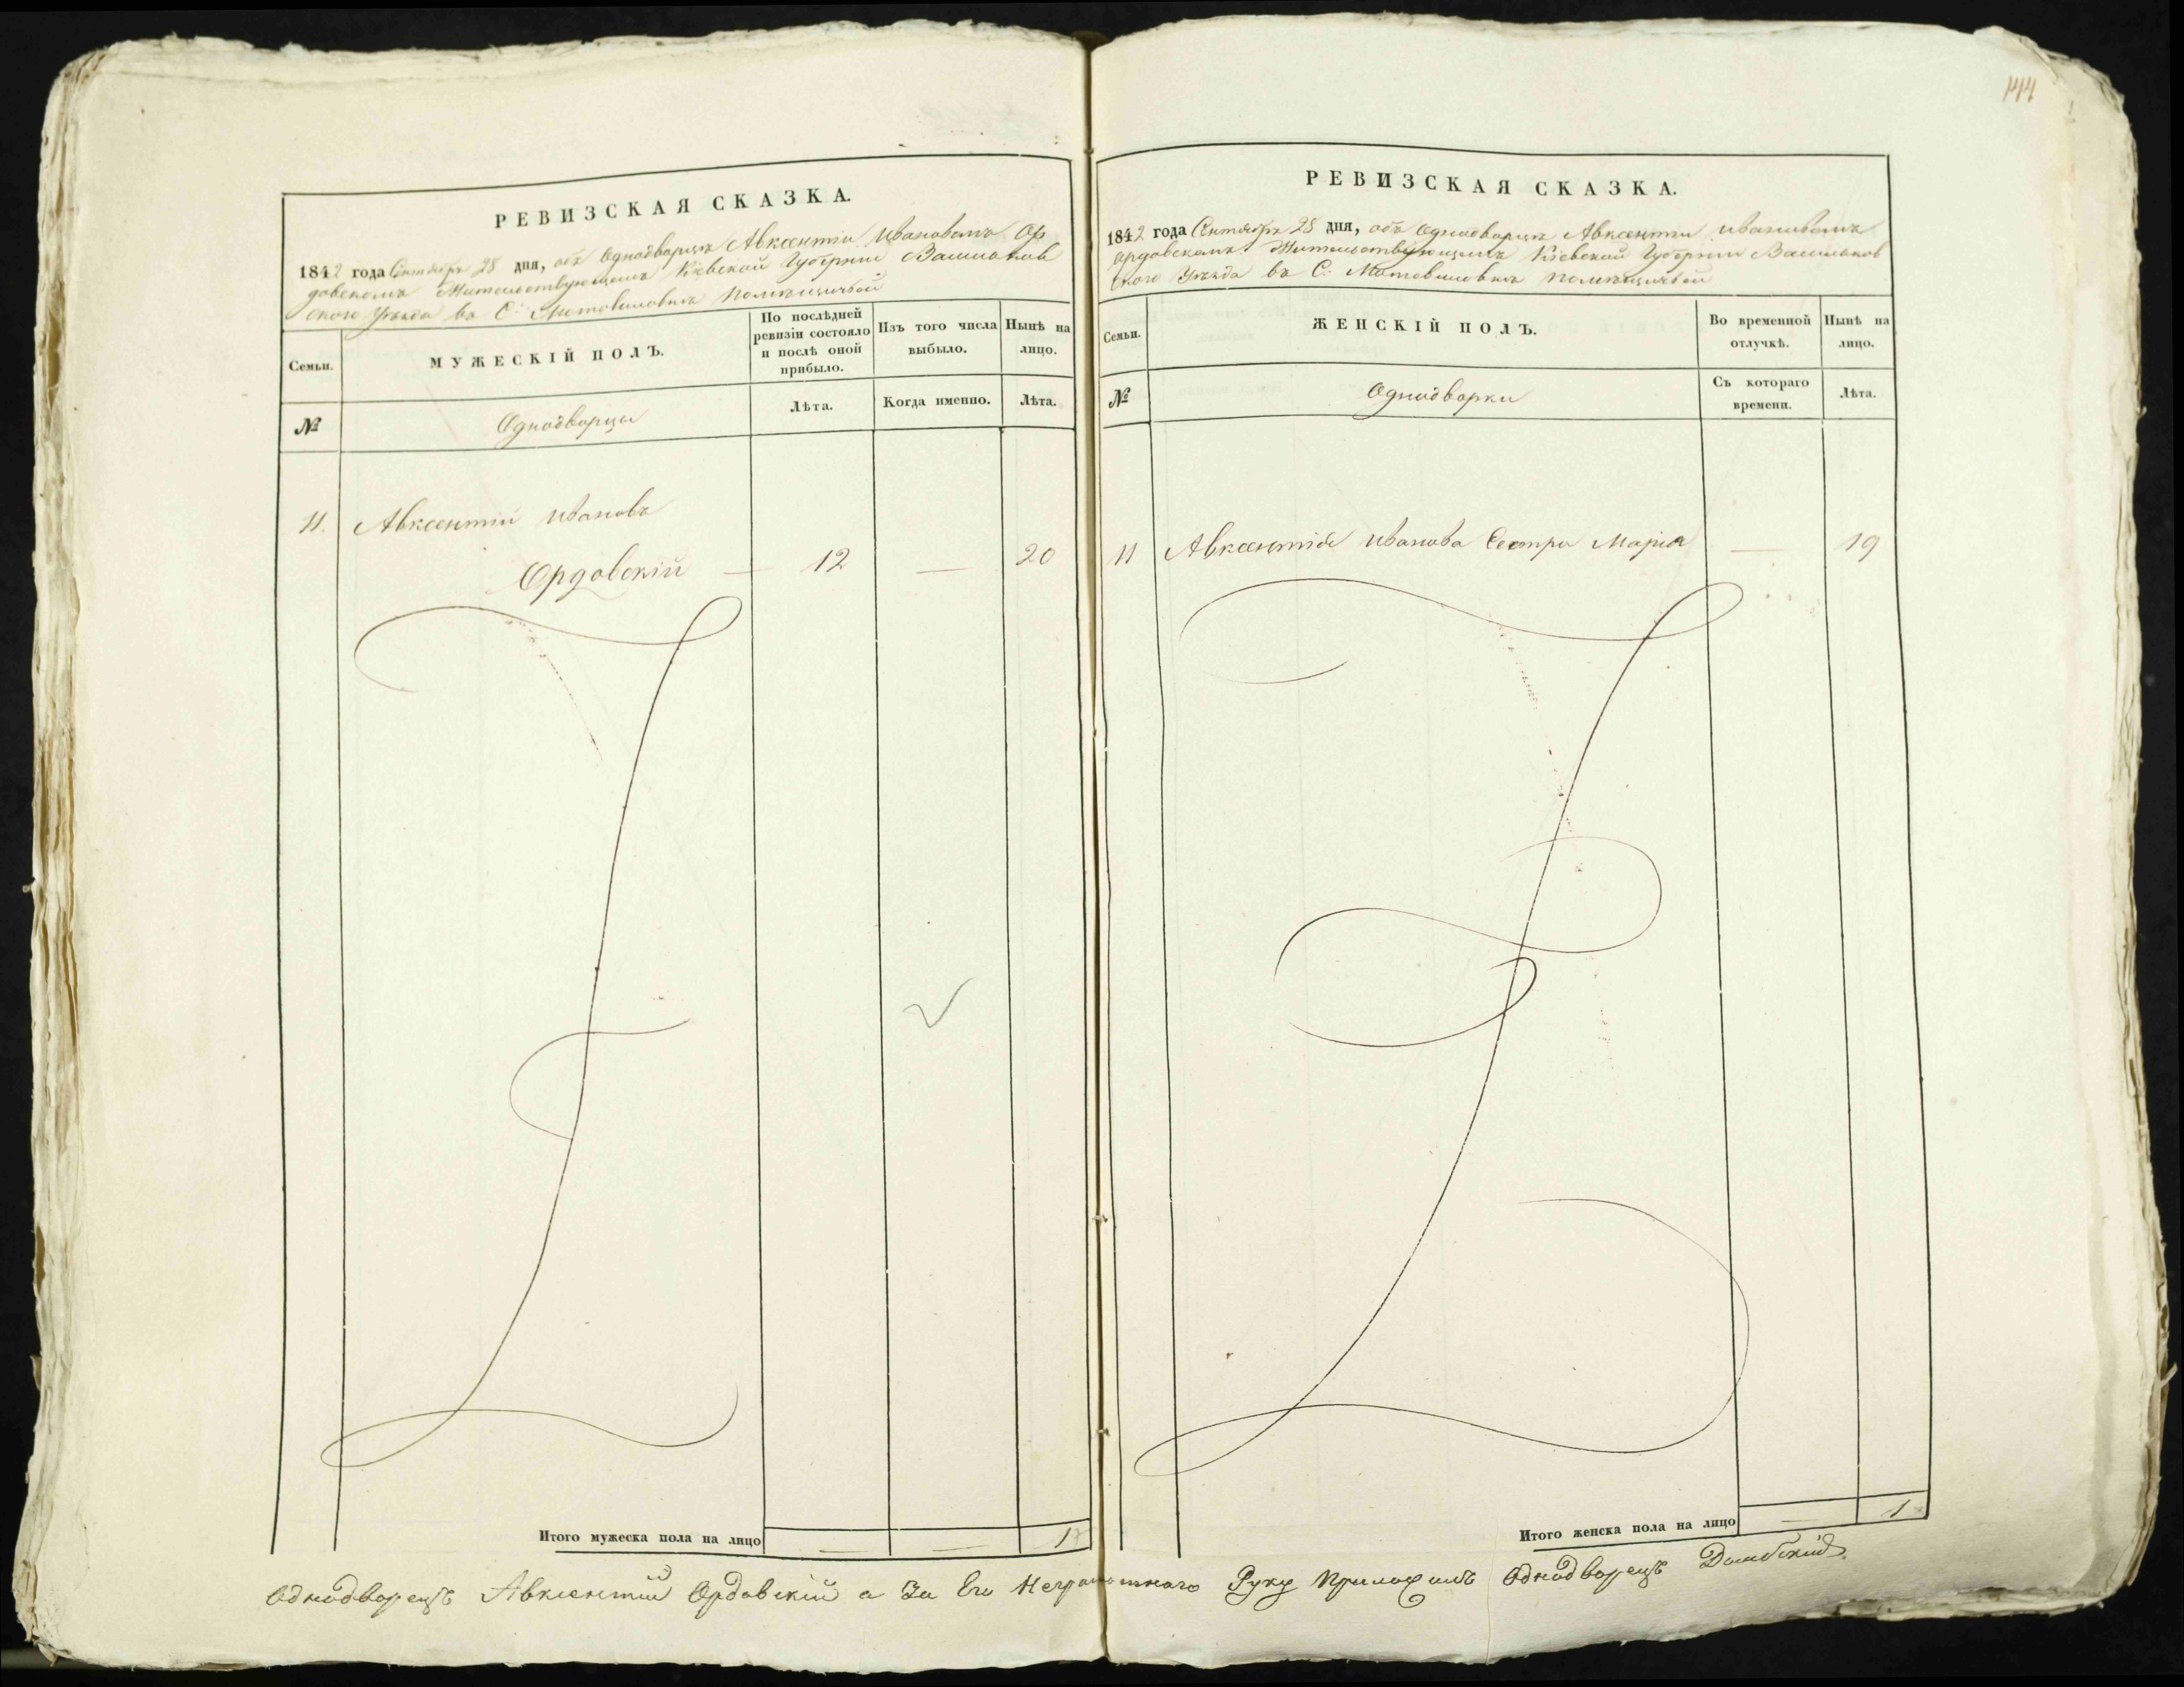 144
РЕВИЗСКАЯ СКАЗКА.
1842 года Сентября 28 дня, объ Однодворцѣ Авксентіи Ивановомъ Ор
довскомъ Жительствующемъ Кіевской Губерніи Васильков
ского Уѣзда въ С.
Семьи.
МУЖЕСКІЙ ПОЛЪ.
По послѣдней ревизіи состояло и послѣ оной прибыло.
Изъ того числа выбыло.
Нынѣ на лицо.
№
Однодворцы
Лѣта.
Когда именно.
Лѣта.
11. Авксентій Ивановъ
Ордовскій — 12 — 20
Итого мужеска пола на лицо — — 1
РЕВИЗСКАЯ СКАЗКА.
1842 года Сентября 28 дня, объ Однодворцѣ Авксентіи Ивановомъ
Ордовскомъ Жительствующемъ Кіевской Губерніи Васильков
ского Уѣзда въ С.
Семьи.
ЖЕНСКІЙ ПОЛЪ.
Во временной отлучкѣ.
Нынѣ на лицо.
№
Однодворки
Съ котораго времени.
Лѣта.
11 Авксентія Иванова Сестра Марія — 19
Итого женска пола на лицо — 1
Однодворецъ Авксентий Ордовскій а За Его Неграмотнаго Руку Приложилъ Однодворецъ